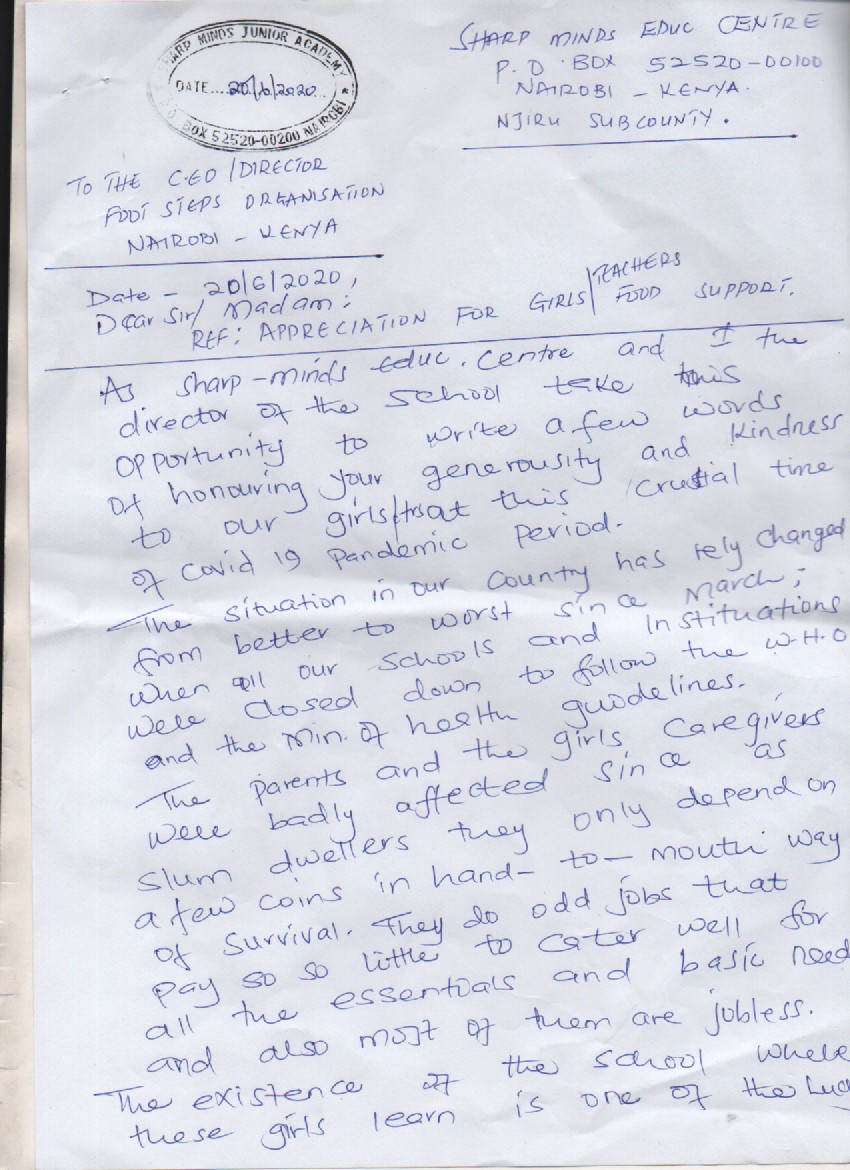 SHARP MINDS JUNIOR ACADEMY
DATE....20/6/2020...
BOX 52520-00200 NAIROBI
SHARP MINDS EDUC CENTRE
P.O BOX 52520-00100
NAIROBI - KENYA.
NJIRU SUBCOUNTY.
TO THE C.EO/DIRECTOR
FOOT STEPS ORGANISATION
NAIROBI - KENYA
Date - 20/6/2020,
Dear Sir/ Madam:
REF: APPRECIATION FOR GIRLS/TEACHERS FOOD SUPPORT.
As sharp-minds Educ. Centre and I the
director of the school take this
opportunity to write a few words
of honouring your generousity and kindness
to our girls/trs at this crucial time
of covid 19 pandemic period.
The situation in our country has rely changed
from better to worst since March;
when all our schools and instituations
were closed down to follow the W.H.O
and the Min. of health guidelines.
The parents and the girls caregivers
were badly affected since as
slum dwellers they only depend on
a few coins in hand-to-mouth way
of survival. They do odd jobs that
pay so so little to cater well for
all the essentials and basic need
and also most of them are jobless.
The existence of the school where
these girls learn is one of the